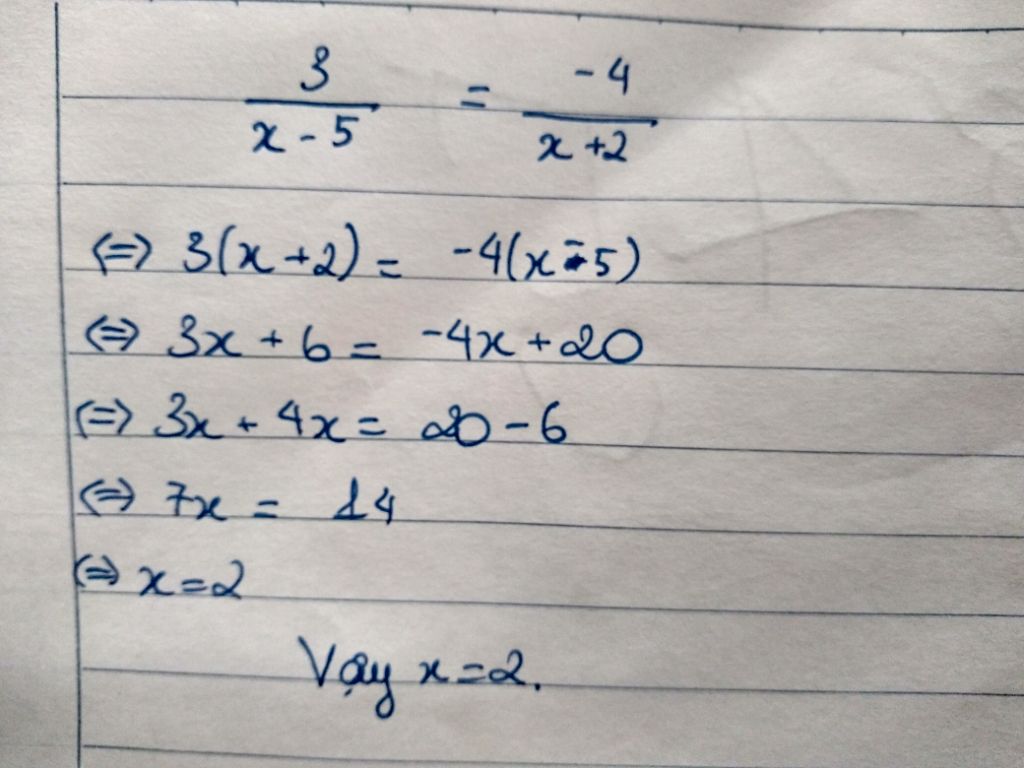 3/(x - 5) = -4/(x + 2)
⇔ 3(x + 2) = -4(x - 5)
⇔ 3x + 6 = -4x + 20
⇔ 3x + 4x = 20 - 6
⇔ 7x = 14
⇔ x = 2
Vậy x = 2.